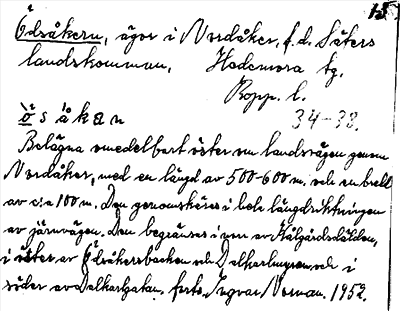 15
Ödsåkern, ägor i Nordåker, f.d. Säters
landskommun, Hedemora tg.
Kopp. l.
34-38.
ö̀ s å̀kaṇ
Belägna omedelbart öster om landsvägen genom
Nordåker, med en längd av 500-600 m. och en bredd
av c:a 100 m. Den genomskäres i hela längdriktningen
av järnvägen. Den begränses i norr av Kålgårdsdalden,
i öster av Ödsåkersbacken och Dalkarlmyren och i
söder av Dalkarlgatan. forts. Ingvar Norman. 1952.